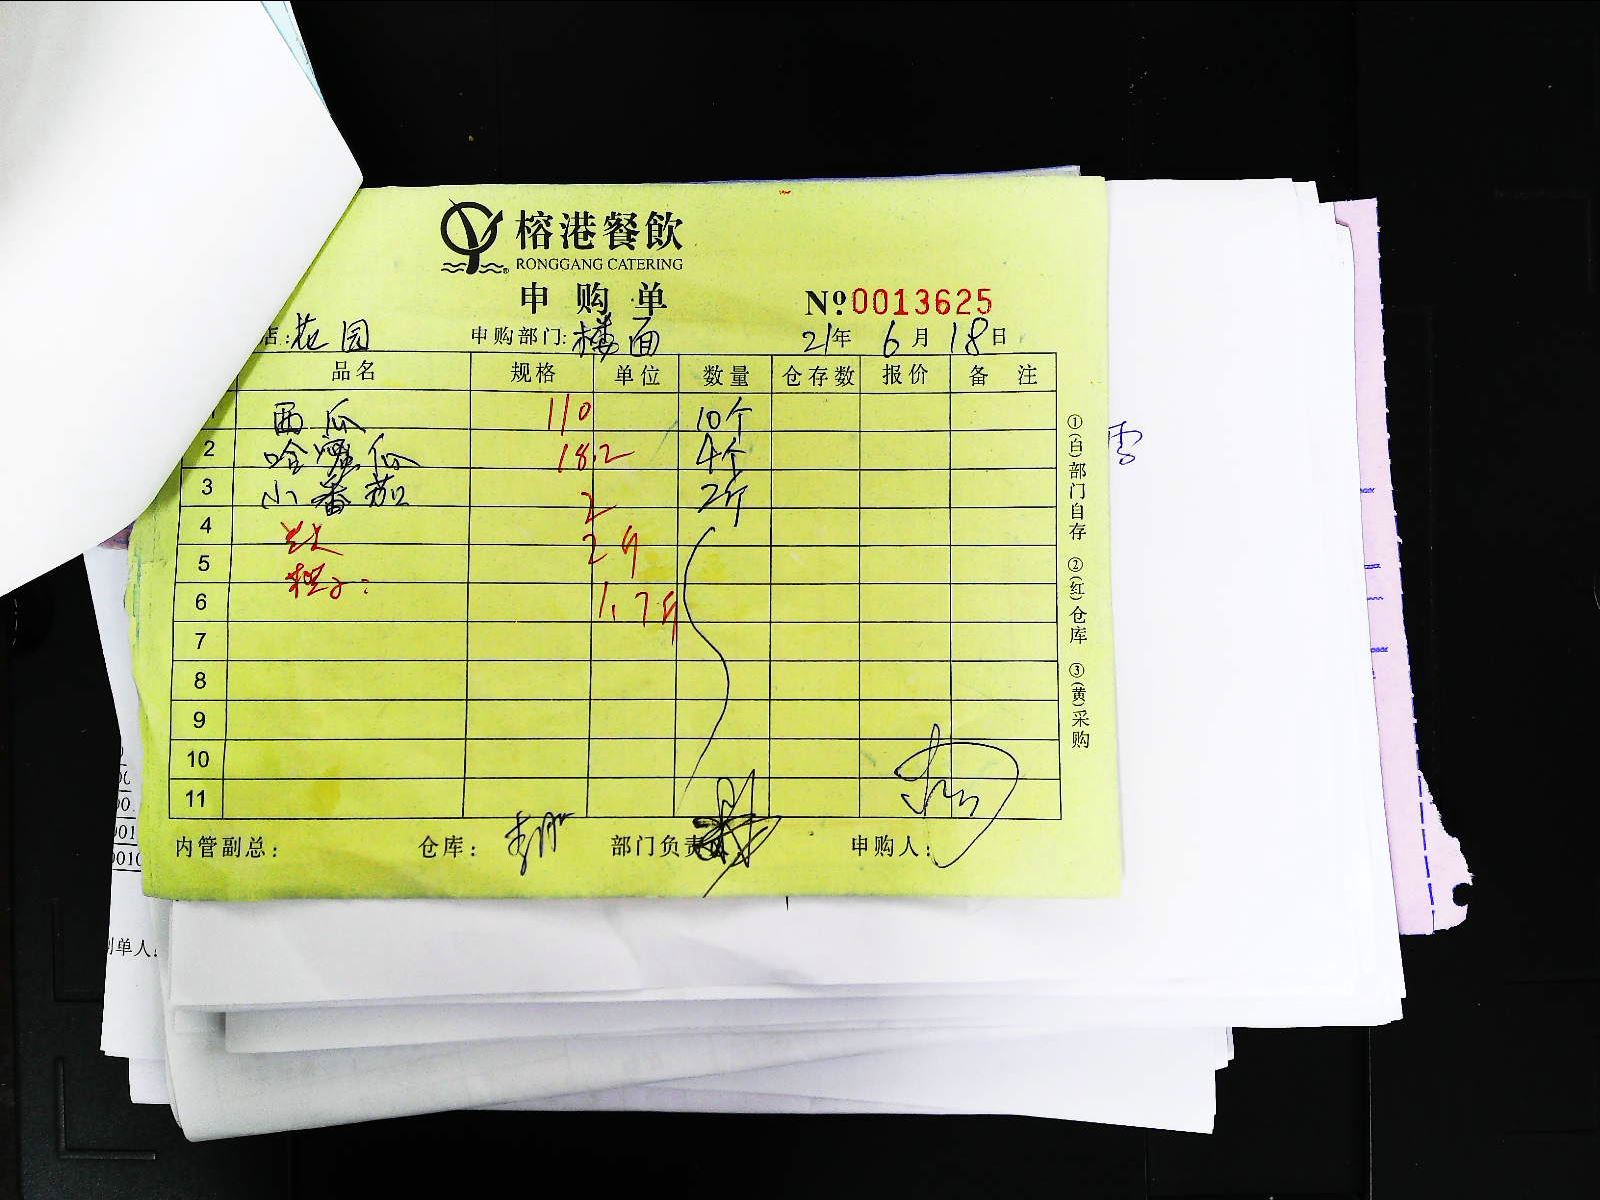 榕港餐飲
RONGGANG CATERING
申购单
№0013625
店:花园 申购部门:楼面 21年6月18日
品名 规格 单位 数量 仓存数 报价 备注
1 西瓜 110 10个
2 哈蜜瓜 18.2 4个
3 小番茄 2 2斤
4 2斤
5
6 1.7斤
7
8
9
10
11
内管副总: 仓库: 部门负责 申购人:
①(白)部门自存 ②(红)仓库 ③(黄)采购
雪
制单人: